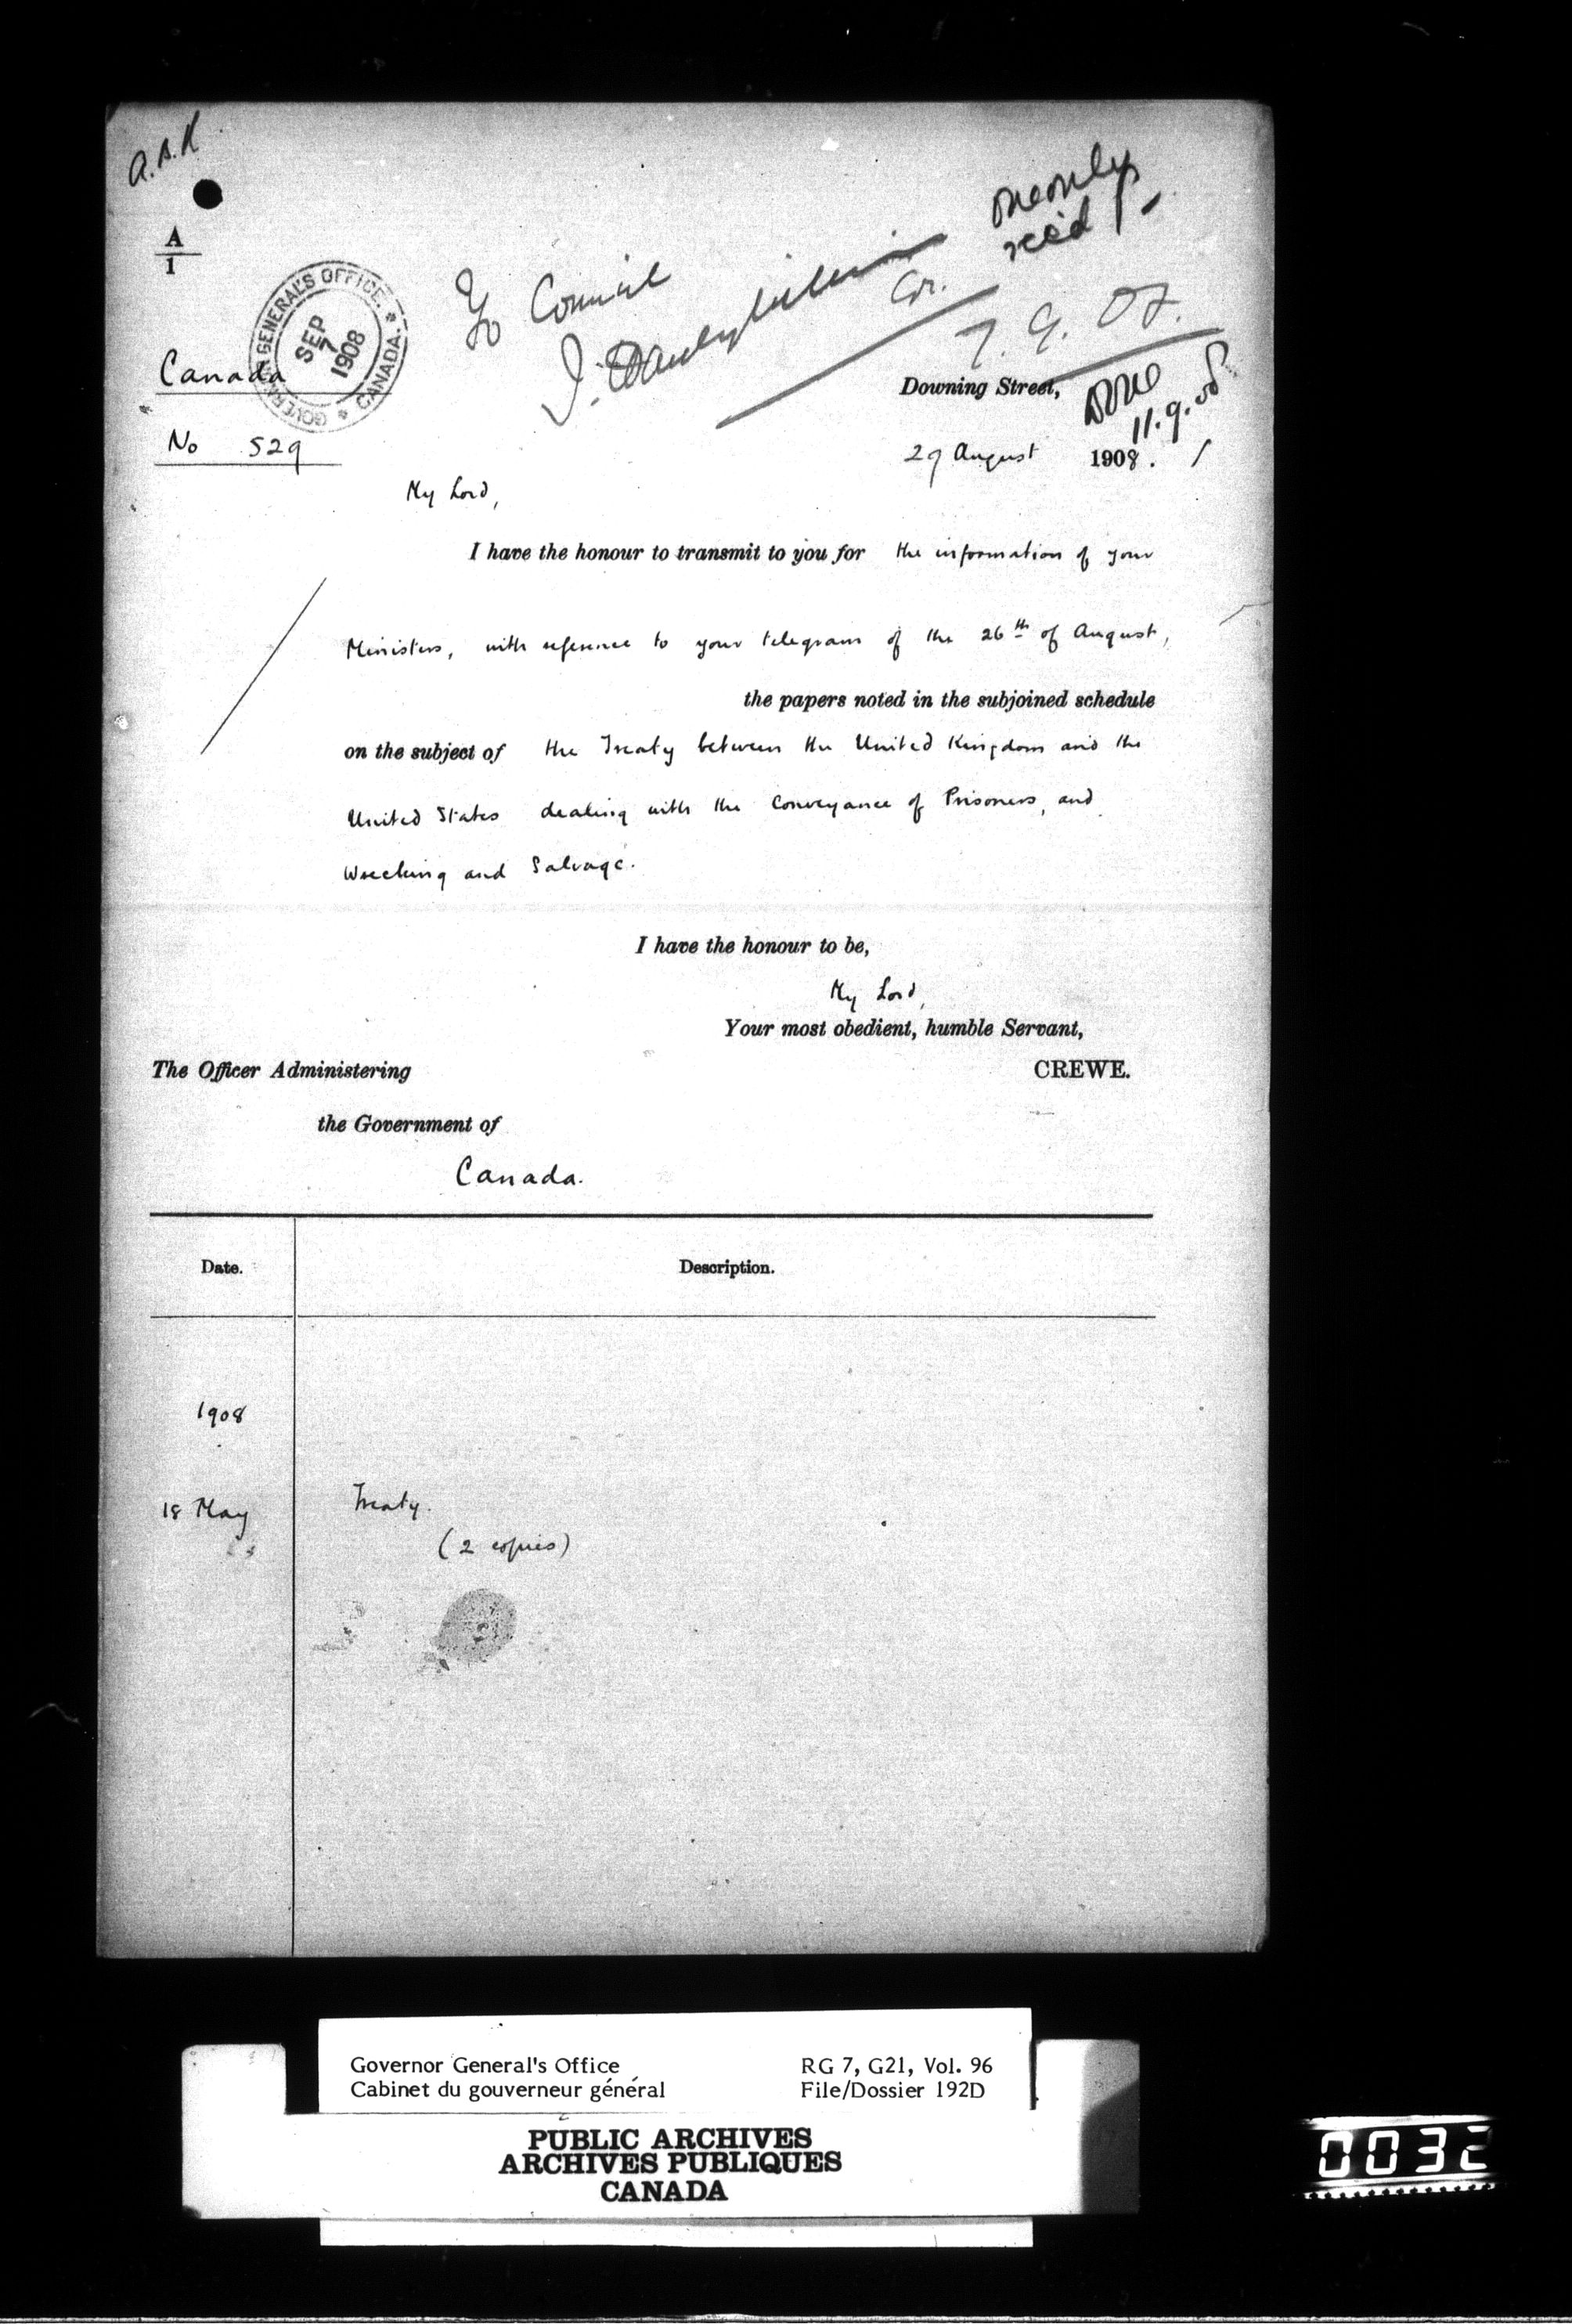 A.B.K
A
1
GOVERNOR GENERAL'S OFFICE.
CANADA.
SEP
7
1908
To Council
one only
rec'd
Canada
Downing Street,
Done
11.9.08
No 529
29 August 1908.
My Lord,
I have the honour to transmit to you for the information of your
Ministers, with reference to your telegram of the 26th of August,
the papers noted in the subjoined schedule
on the subject of the Treaty between the United Kingdom and the
United States dealing with the Conveyance of Prisoners, and
Wrecking and Salvage.
I have the honour to be,
My Lord,
Your most obedient, humble Servant,
The Officer Administering
CREWE.
the Government of
Canada.
Date.
Description.
1908
18 May
Treaty.
(2 copies)
Governor General's Office
RG 7, G21, Vol. 96
Cabinet du gouverneur général
File/Dossier 192D
PUBLIC ARCHIVES
ARCHIVES PUBLIQUES
CANADA
0032